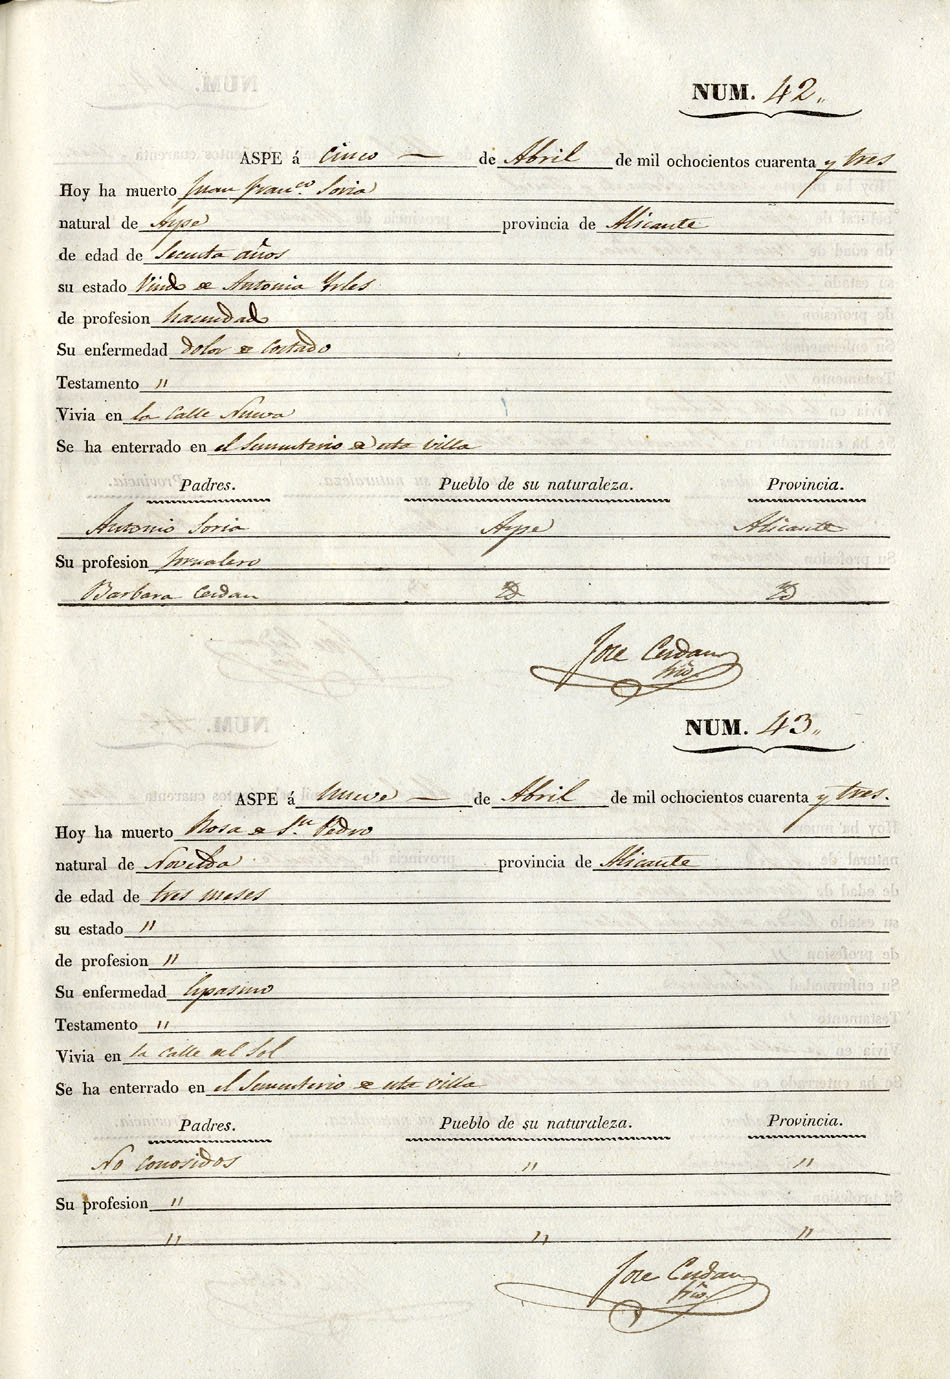 NUM. 42„
ASPE á cinco — de Abril de mil ochocientos cuarenta y tres
Hoy ha muerto Juan Franco. Soria
natural de Aspe provincia de Alicante
de edad de años
su estado Viudo de Antonia Yrles
de profesion hacendado
Su enfermedad dolor de costado
Testamento "
Vivia en la Calle Nueva
Se ha enterrado en el Sementerio de esta Villa
Padres. Pueblo de su naturaleza. Provincia.
Antonio Soria Aspe Alicante
Su profesion
Barbara Cerdan Id Id
Jose Cerdan
NUM. 43„
ASPE á nueve — de Abril de mil ochocientos cuarenta y tres.
Hoy ha muerto Rosa de Sn Pedro
natural de Novelda provincia de Alicante
de edad de tres meses
su estado "
de profesion "
Su enfermedad
Testamento "
Vivia en la Calle del Sol
Se ha enterrado en el Sementerio de esta Villa
Padres. Pueblo de su naturaleza. Provincia.
No conosidos " "
Su profesion "
" " "
Jose Cerdan